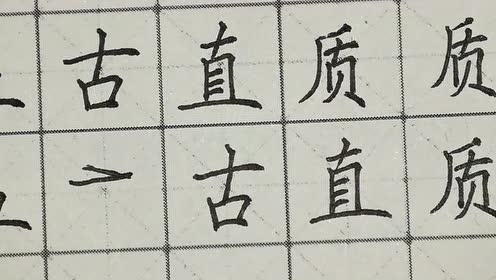 古直质质
一古直质